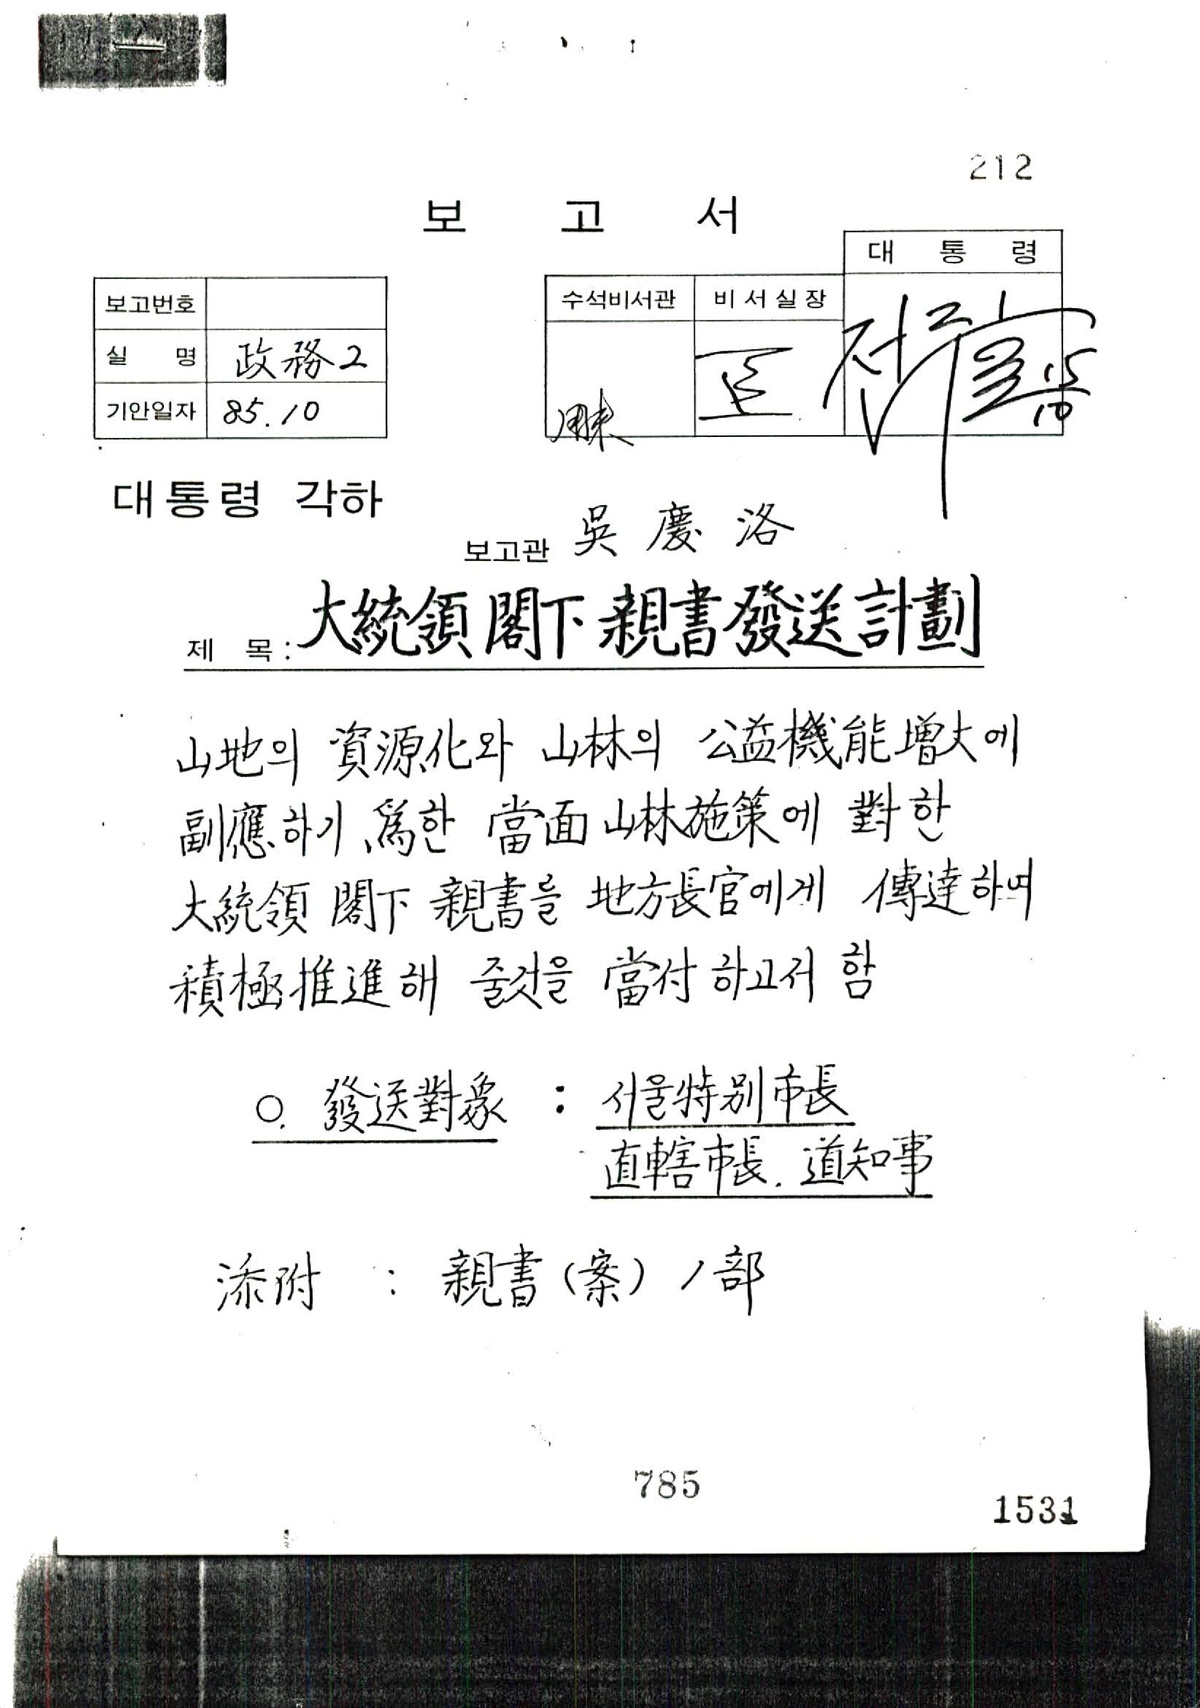 212
보 고 서
보고번호
실 명 政務2
기안일자 85.10
수석비서관 비서실장 대 통 령
15
10
대통령 각하
보고관 吳慶洛
제 목: 大統領 閣下 親書 發送 計劃
山地의 資源化와 山林의 公益機能增大에
副應하기 爲한 當面 山林施策에 對한
大統領 閣下 親書을 地方長官에게 傳達하여
積極推進해 줄것을 當付하고저 함
○. 發送對象 : 서울特別市長
直轄市長. 道知事
添附 : 親書(案) 1部
785
1531